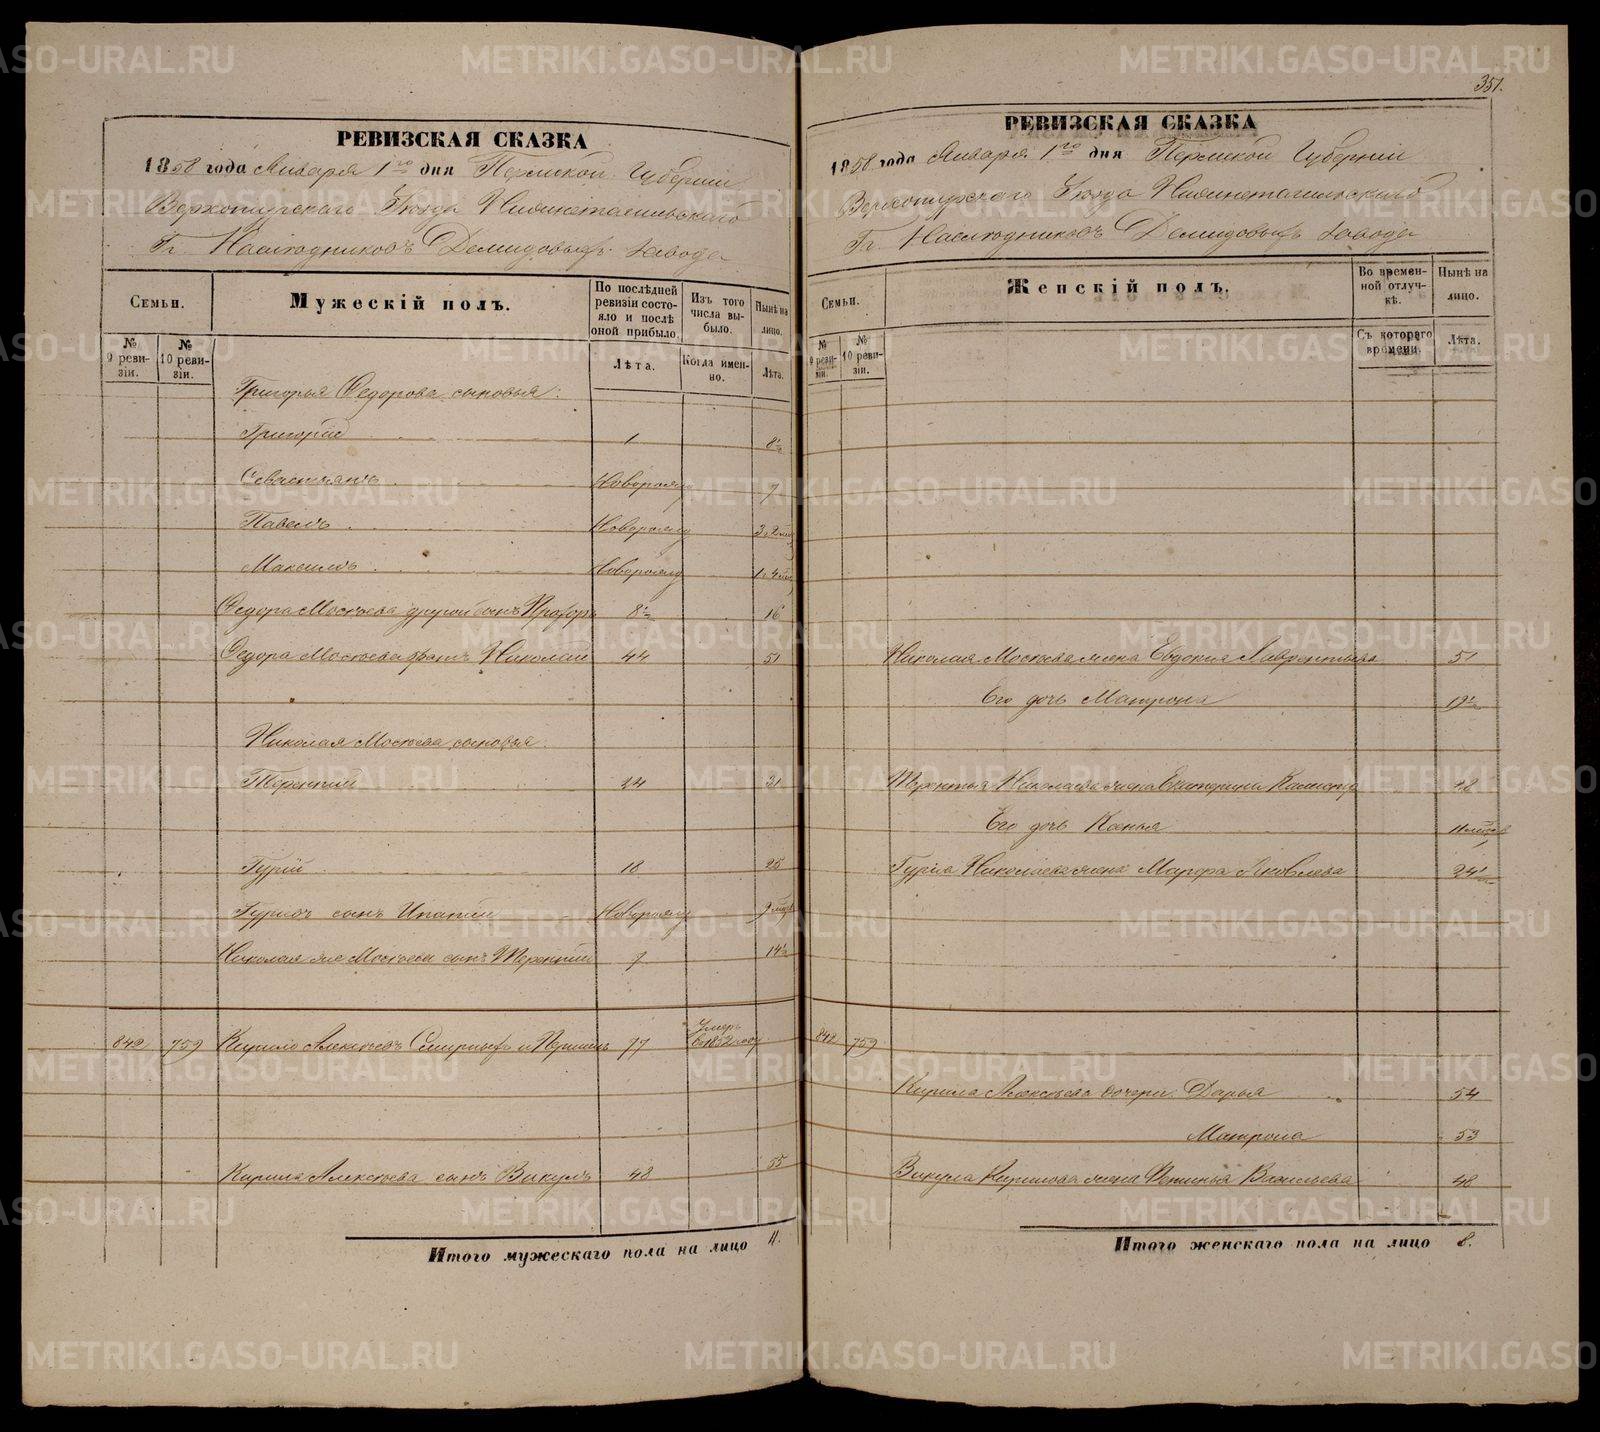 351.
РЕВИЗСКАЯ СКАЗКА
1858 года Января 1го дня Пермской Губернiи
Верхотурскаго Уѣзда Нижнетагильскаго
Гг. Наслѣдниковъ Демидовыхъ завода
Семьи.
Мужескiй полъ.
По послѣдней ревизiи состояло и послѣ оной прибыло.
Изъ того числа выбыло.
Нынѣ на лицо.
№ 9 ревизiи.
№ 10 ревизiи.
Лѣта.
Когда именно.
Лѣта.
Григорья Федорова сыновья:
Григорiй 1 8½
Севастьянъ Новорожд 7
Павелъ Новорожд
Максимъ Новорожд
Федора Мосѣева другой сынъ Прохоръ 8½ 16
Федора Мосѣева братъ Николай 44 51
Николая Мосѣева сыновья:
Терентiй 24 31
Гурiй 18 25
сынъ Ипатiй Новорожд
Николая же Мосѣева сынъ Терентiй 7 14½
842 759 Кирило Алексѣевъ 77 Умеръ въ 1852 году
Кирила Алексѣева сынъ Викулъ 48 55
Итого мужескаго пола на лицо 11.
РЕВИЗСКАЯ СКАЗКА
1858 года Января 1го дня Пермской Губернiи
Верхотурскаго Уѣзда Нижнетагильскаго
Гг. Наслѣдниковъ Демидовыхъ завода
Семьи.
Женскiй полъ.
Во временной отлучкѣ.
Нынѣ на лицо.
№ 9 ревизiи.
№ 10 ревизiи.
Съ котораго времени.
Лѣта.
Николая Мосѣева жена Евдокия Лаврентьева 51
Его дочь Матрона
Терентья Николаева жена Екатерина
Его дочь Ксенья
Гурiя Николаева жена Марфа Яковлева 24½
842 759
Кирила Алексѣева дочери Дарья 54
Матрона 53
Викула Кирилова жена Васильева 48
Итого женскаго пола на лицо 8.